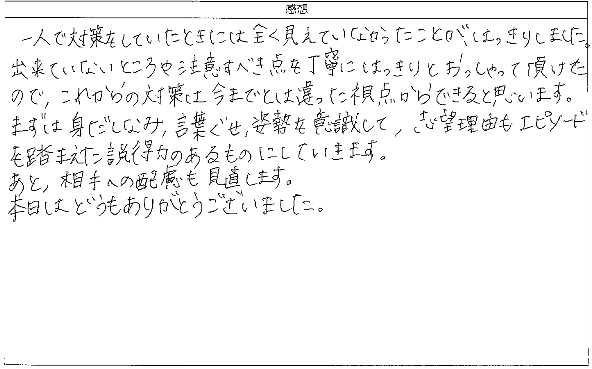 感想
一人で対策をしていたときには全く見えていなかったことが、はっきりしました。
出来ていないところや注意すべき点を丁寧にはっきりとおっしゃって頂けた
ので、これからの対策は今までとは違った視点からできると思います。
まずは身だしなみ,言葉ぐせ,姿勢を意識して,志望理由もエピソード
を踏まえた説得力のあるものにしていきます。
あと,相手への配慮も見直します。
本日はどうもありがとうございました。